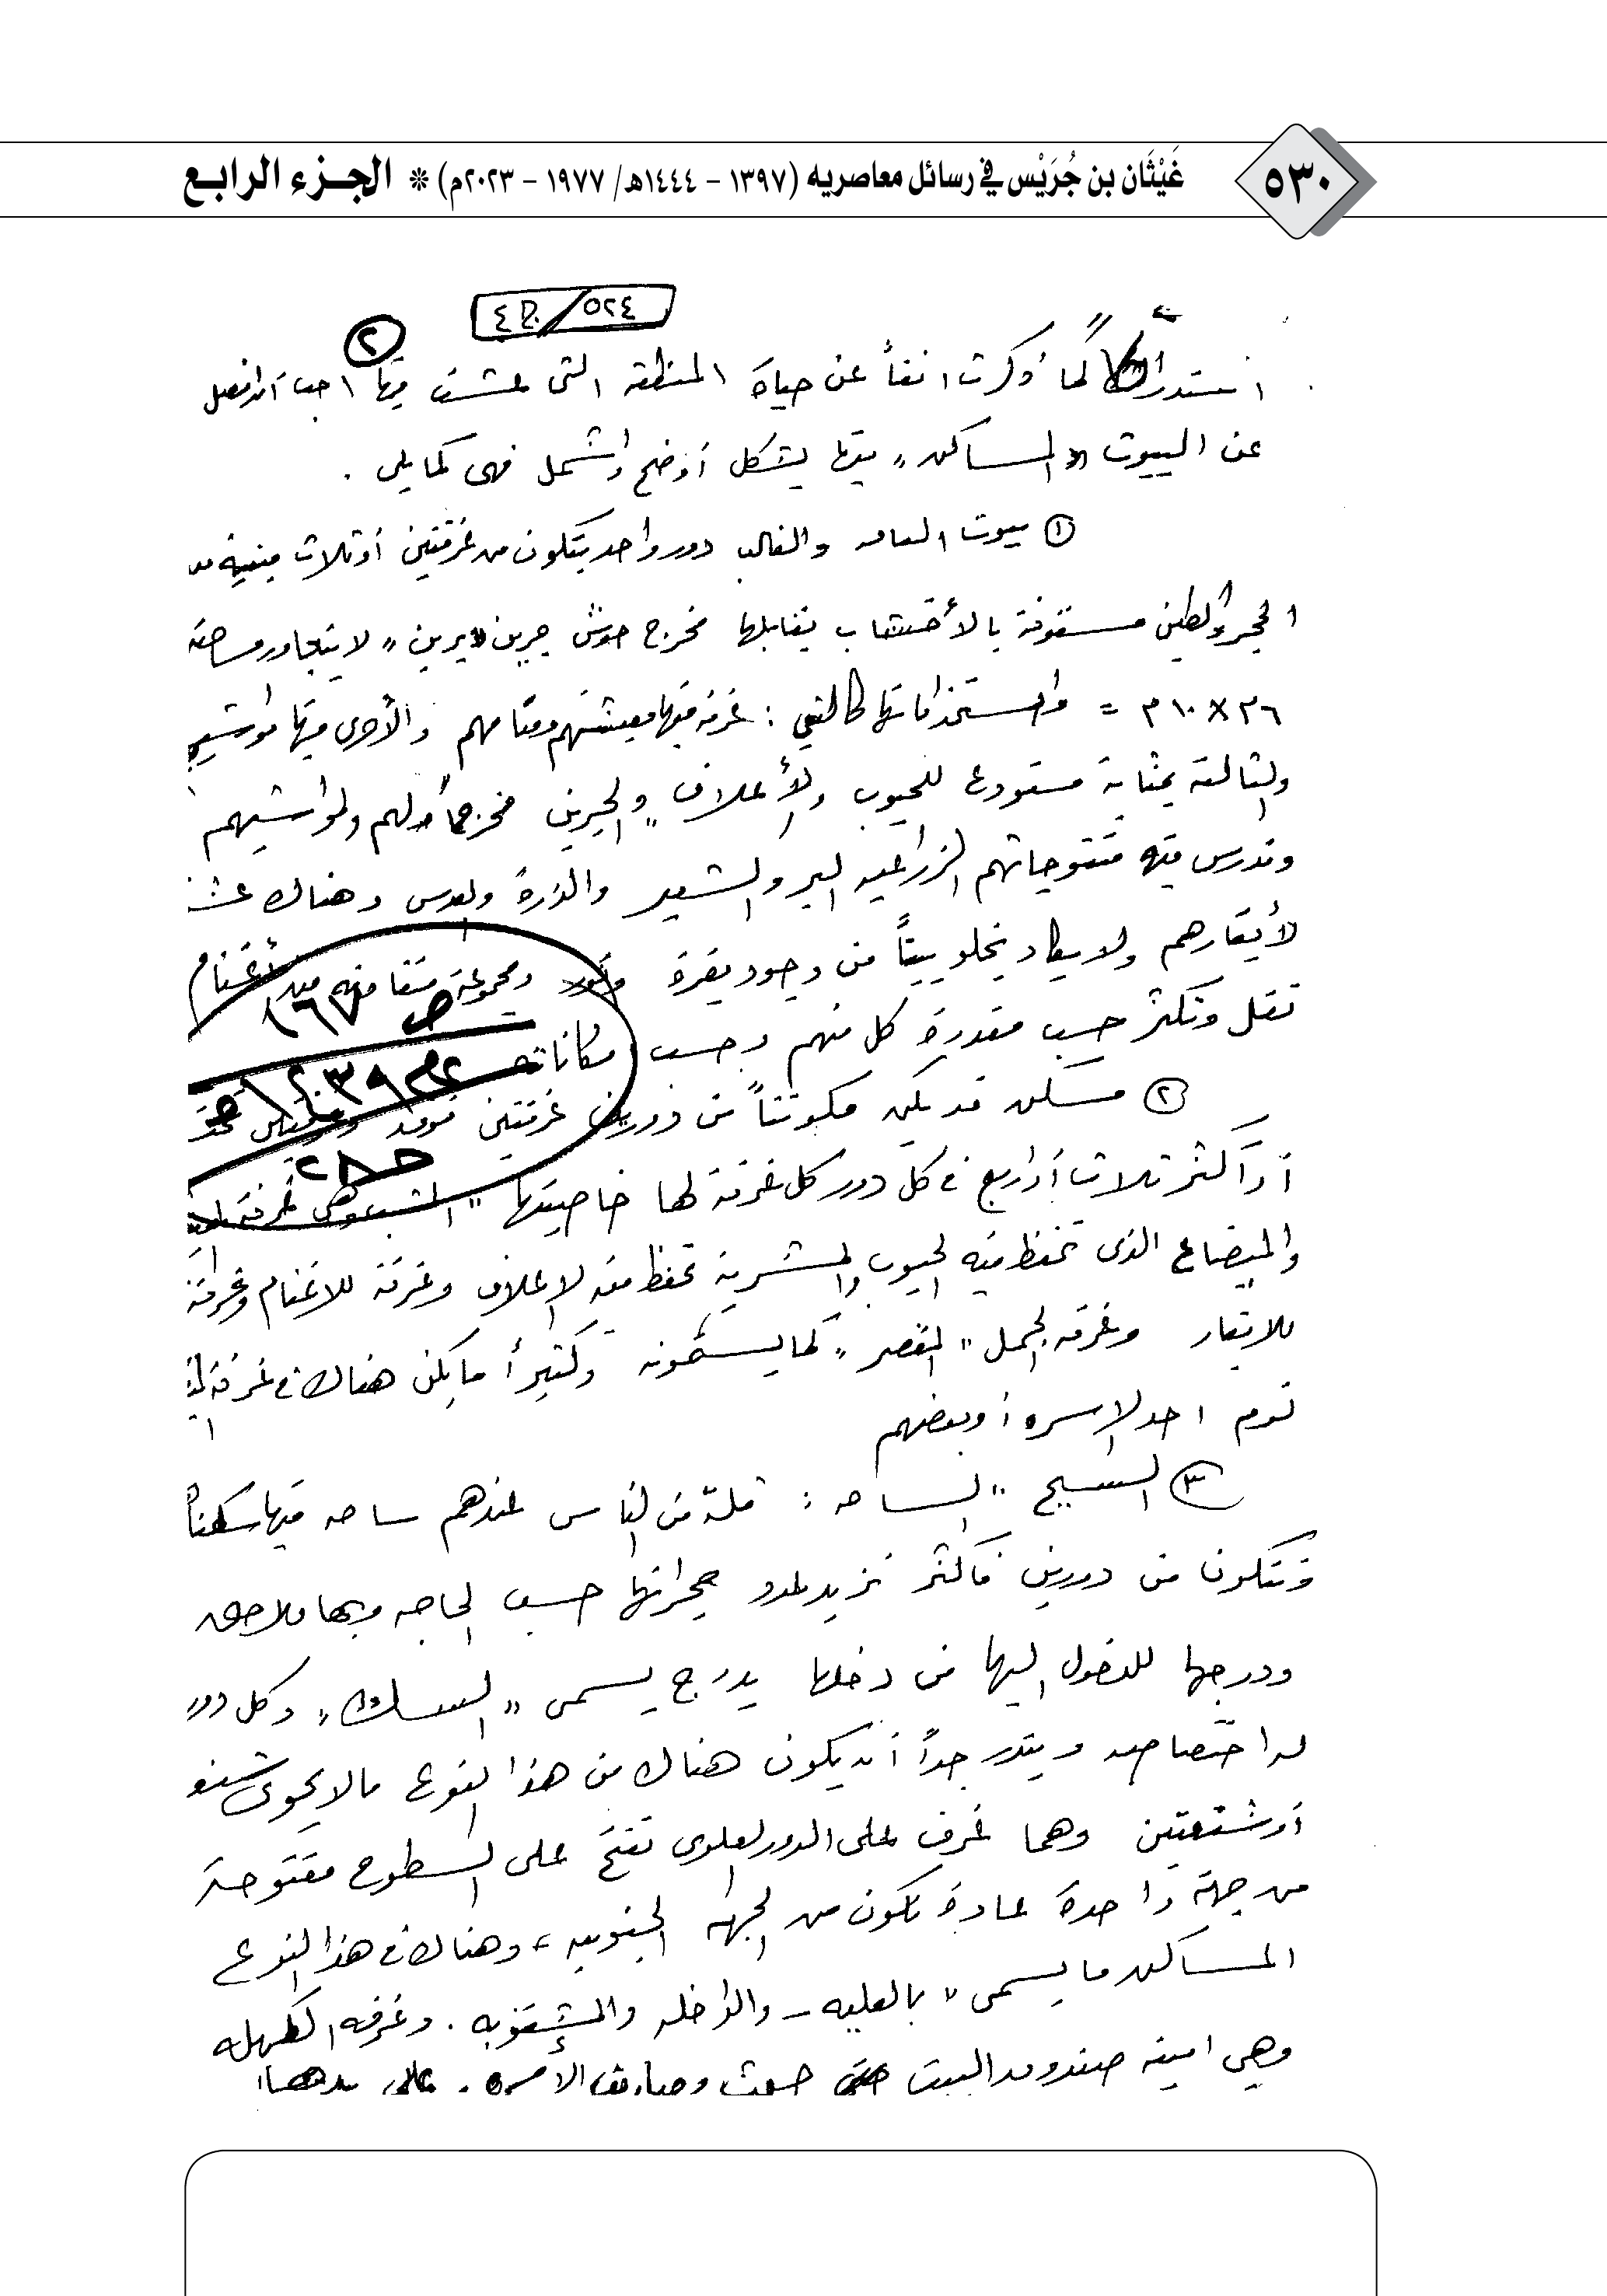 ٥٣٠
غَيْثَان بن جُرَيْس في رسائل معاصريه (١٣٩٧ - ١٤٤٤هـ/ ١٩٧٧ - ٢٠٢٣م) * الجزء الرابع
٥٢٤/
٢
استدراكاً لما ذكرت انفاً عن حياة المنطقه التي عشت فيها احب أن افصل
عن البيوت «المساكن» فيها بشكل أوضح وأشمل فهى كما يلى .
١ بيوت العامه والغالب دور واحد يتكون من غرفتين أو ثلاث مبنيه من
الحجر والطين مسقوفة بالأخشاب يقابلها مخرج حوش جرين «يرين» لا يتجاوز مساحته
٦م × ١٠م = واستخداماتها كالتي : غرفه فيها معيشتهم ومنامهم والأخرى فيها مواشيهم
والثالثة بمثابة مستودع للحبوب والأعلاف والجرين مخرجاً لهم ولمواشيهم
وتدرس فيه منتوجاتهم الزراعيه البر والشعير والذرة والعدس وهناك
لأبقارهم ولا يكاد يخلو بيتاً من وجود بقرة وثور ومجموعة من أغنام
تقل وتكثر حسب مقدرة كل منهم وحسب
ص ١٦٧
٢ مسكن قد يكن مكونتاً من دورين غرفتين فوق
أو أكثر ثلاث أو اربع في كل دور كل غرفة لها خاصيتها " وهي غرفة
والميضاع الذى تحفظ فيه الحبوب والمشرية تحفظ فيه الاعلاف وغرفة للاغنام وغرفة
للابقار وغرفه الجمل " القصر " كما يسمونه وكثيراً ما يكن هناك في غرفة
نوم احد الاسره أو بعضهم
٣ السيح " الساحه : قلة من الناس عندهم ساحه فيها سكناً
وتتكون من دورين فأكثر تزيد عدد حجراتها حسب الحاجه وبها ملاحق
ودرجها للدخول اليها من داخلها يدرج يسمى " " وكل دور
له اختصاصه ويندر جداً أن يكون هناك من هذا النوع ما لا يحوى
أو شتعتين وهما غرف على الدور العلوى تفتح على السطوح مفتوحة
من جهة واحدة عادة تكون من الجهه الجنوبيه ، وهناك في هذا النوع
المساكن ما يسمى " بالعليه - والداخله . وغرفه الكهله
وهي امينه صندوق البيت الاسره .